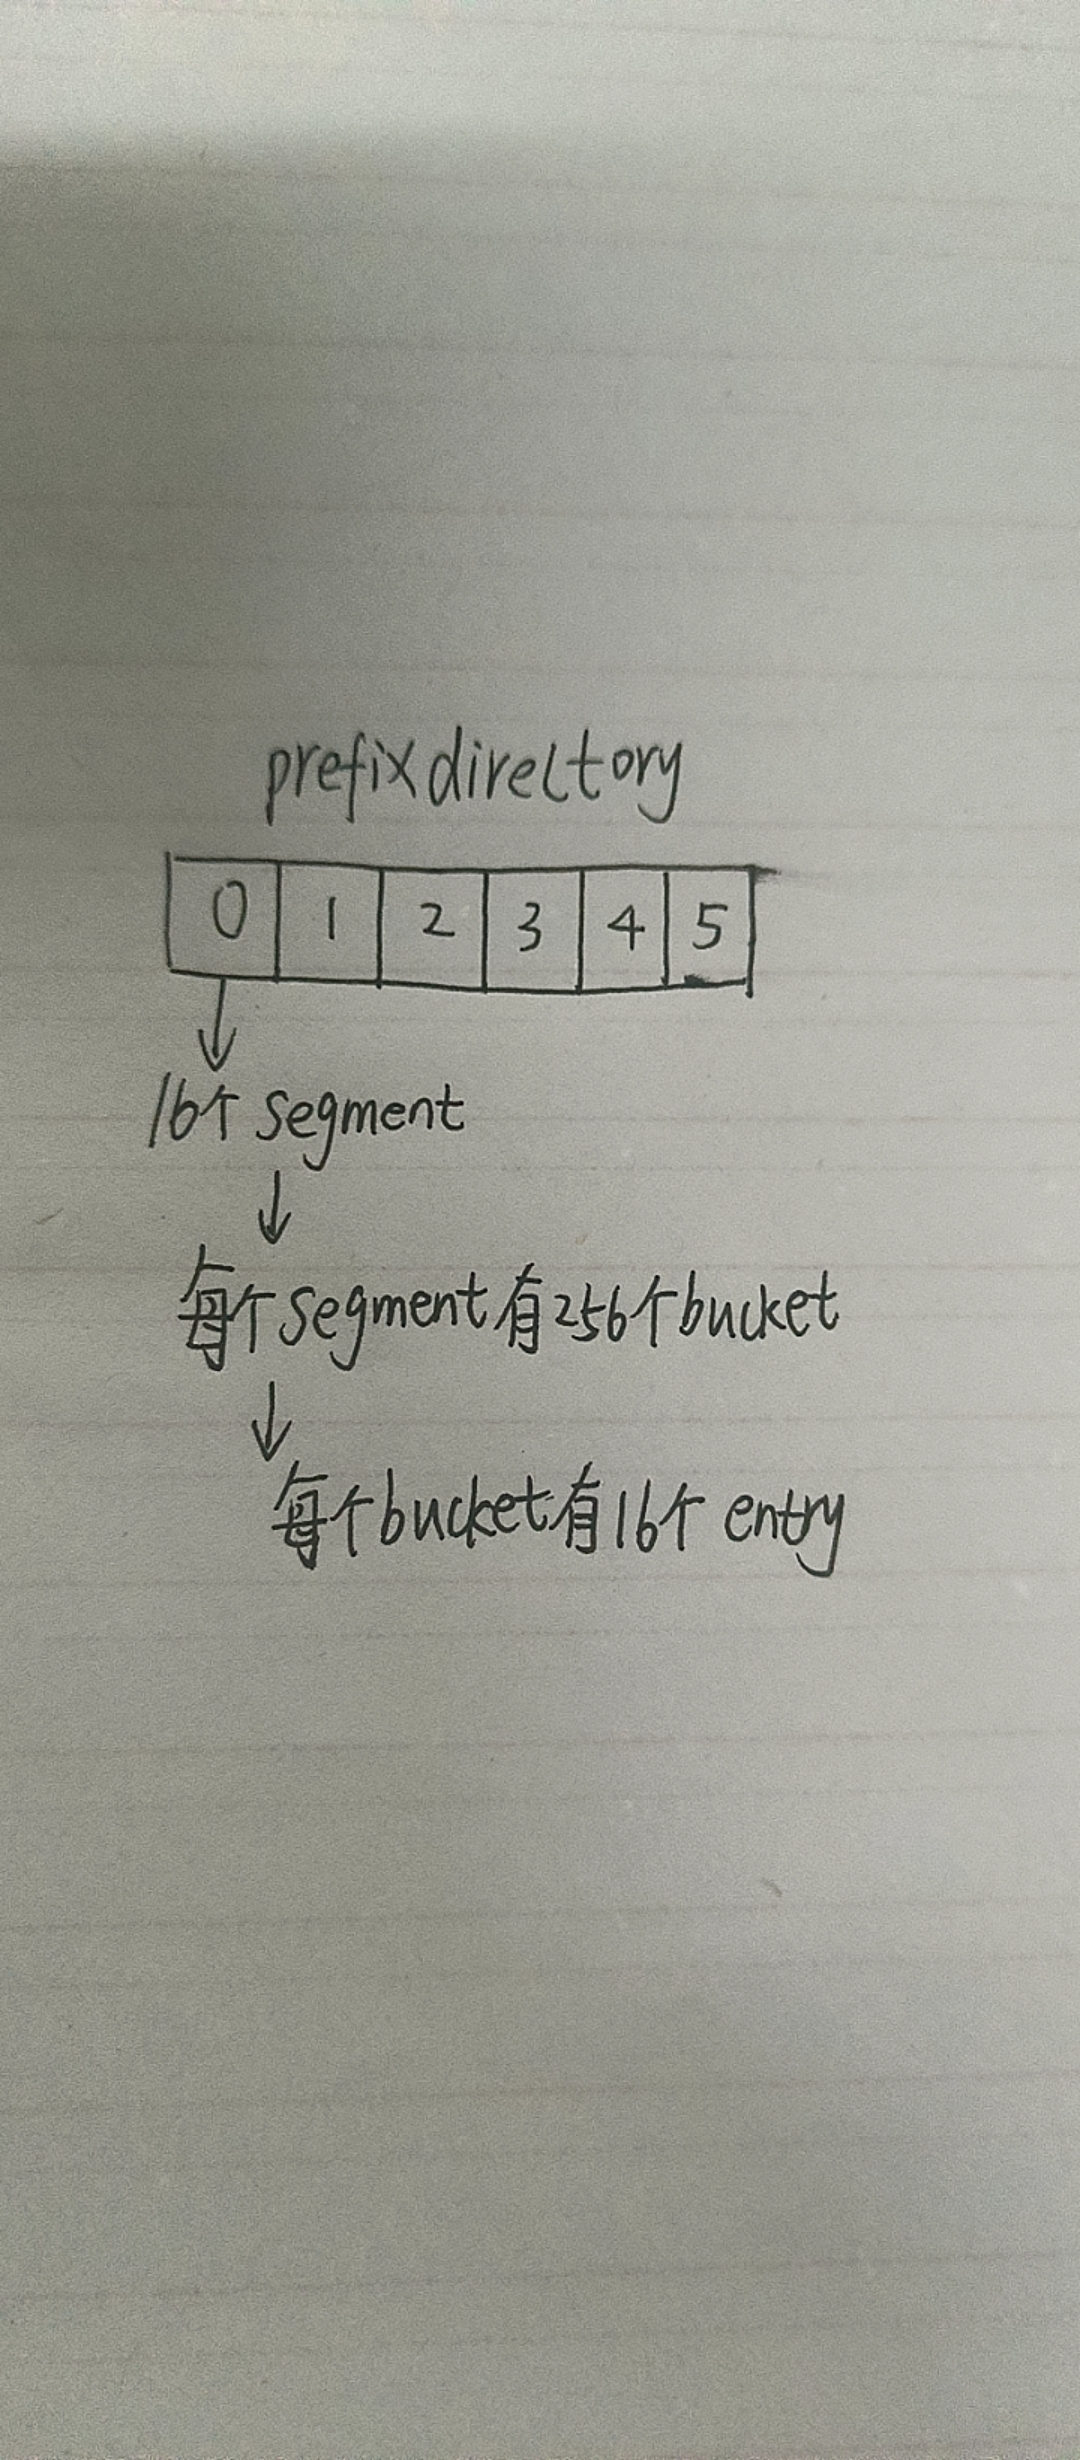 prefixdirectory
0 1 2 3 4 5
16个 segment
每个segment有256个bucket
每个bucket有16个 entry